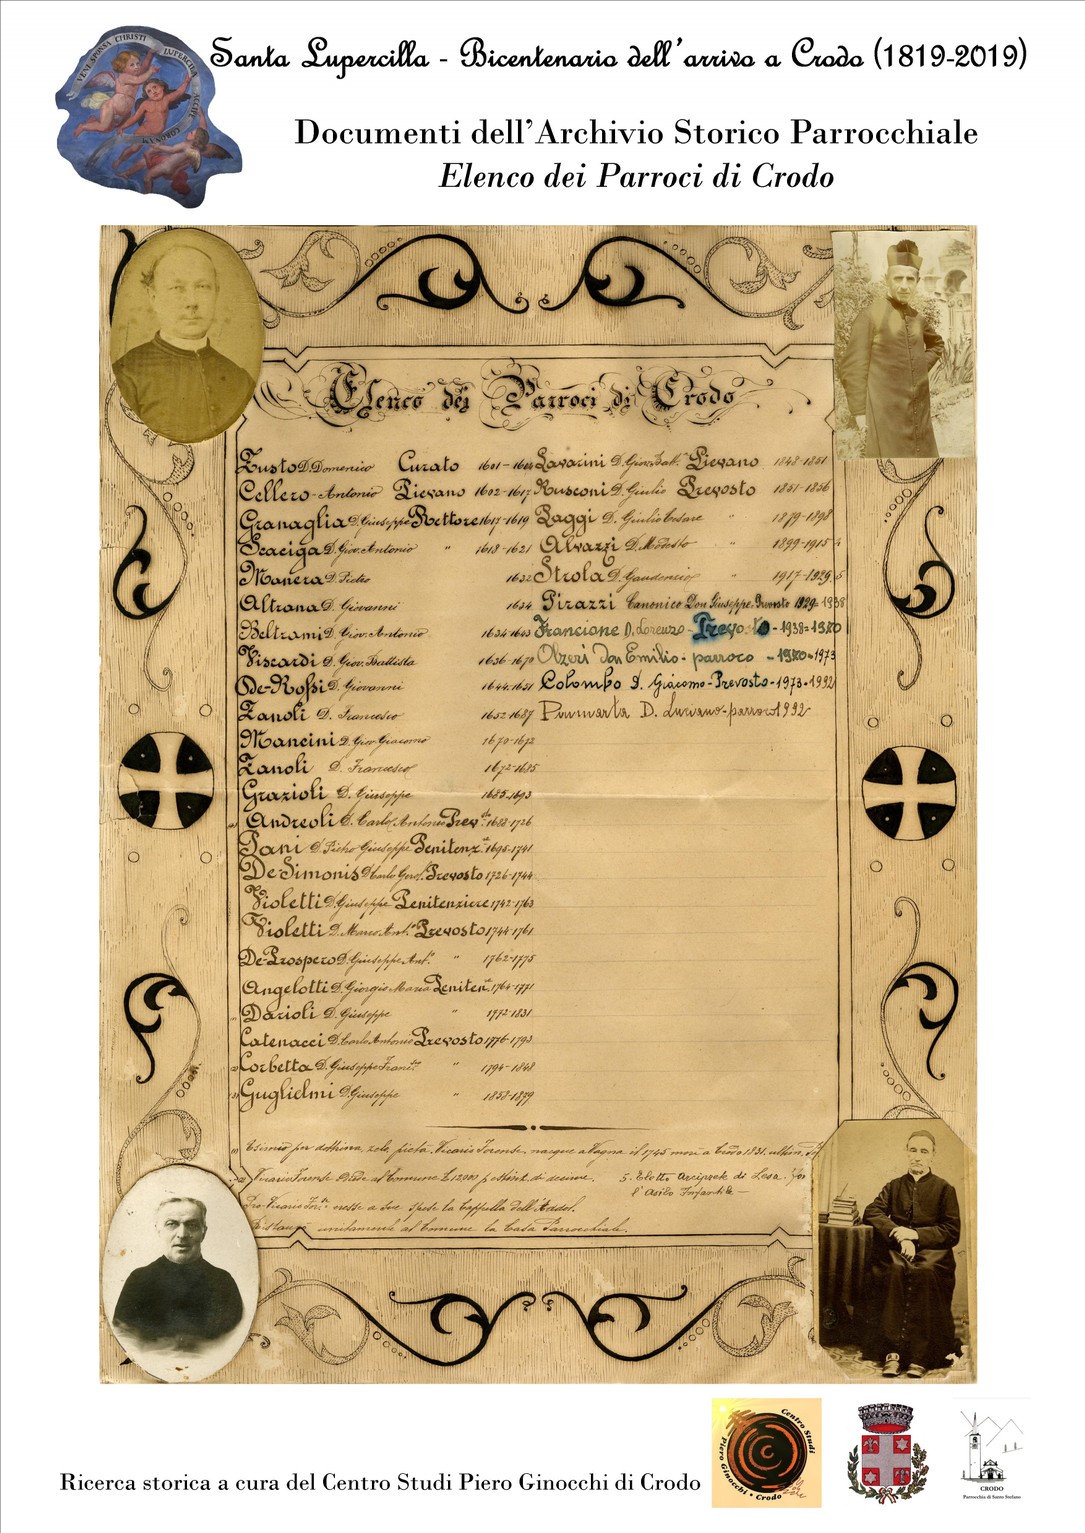 VENI SPONSA CHRISTI LUPERCILLA ACCIPE CORONAM
Santa Lupercilla - Bicentenario dell'arrivo a Crodo (1819-2019)
Documenti dell'Archivio Storico Parrocchiale
Elenco dei Parroci di Crodo
Elenco dei Parroci di Crodo
Zusto D. Domenico Curato 1601-1604
Cellero - Antonio Pievano 1602-1617
Granaglia D. Giuseppe Rettore 1617-1619
Scaciga D. Giov. Antonio " 1618-1621
Manera D. Pietro 1632
Altrana D. Giovanni 1634
Beltrami D. Giov. Antonio 1634-1643
Viscardi D. Giov. Battista 1636-1670
De-Rossi D. Giovanni 1644-1651
Zanoli D. Francesco 1652-1687
Mancini D. Giov. Giacomo 1670-1672
Zanoli D. Francesco 1672-1685
Grazioli D. Giuseppe 1685-1693
Andreoli D. Carlo Antonio Prev.to 1688-1726
Pani D. Pietro Giuseppe Penitenz. 1695-1741
De-Simonis D. Carlo Prevosto 1726-1744
Violetti D. Giuseppe Penitenziere 1742-1763
Violetti D. Marco Ant.o Prevosto 1744-1761
De-Prospero D. Giuseppe Ant.o " 1762-1775
Angelotti D. Giorgio Maria Peniten. 1764-1771
Darioli D. Giuseppe " 1772-1831
Catenacci D. Carlo Antonio Prevosto 1776-1793
Corbetta D. Giuseppe Franc. " 1794-1848
Guglielmi D. Giuseppe " 1858-1879
Lavarini D. Giov. Batt. Pievano 1848-1851
Rusconi D. Giulio Prevosto 1851-1856
Paggi D. Giulio Cesare " 1879-1898
Alvazzi D. Modesto " 1899-1915
Strola D. Gaudenzio " 1917-1929
Pirazzi Canonico Don Giuseppe - Prevosto 1929-1938
Francione D. Lorenzo - Prevosto - 1938-1980
Olzeri don Emilio - parroco - 1980-1973
Colombo D. Giacomo - Prevosto - 1973-1992
D. Luciano - parroco 1992
Esimio per dottrina, zelo, pietà. Vicario Forense. nacque a Vagna il 1745 morì a Crodo 1831.
Vicario Forense al Comune L 12000 p. di decime.
5. Eletto Arciprete di Lesa.
l'Asilo Infantile -
Pro-Vicario eresse a sue spese la Cappella dell'
unitamente al Comune la Casa Parrocchiale.
Ricerca storica a cura del Centro Studi Piero Ginocchi di Crodo
Centro Studi Piero Ginocchi - Crodo
CRODO
Parrocchia di Santo Stefano